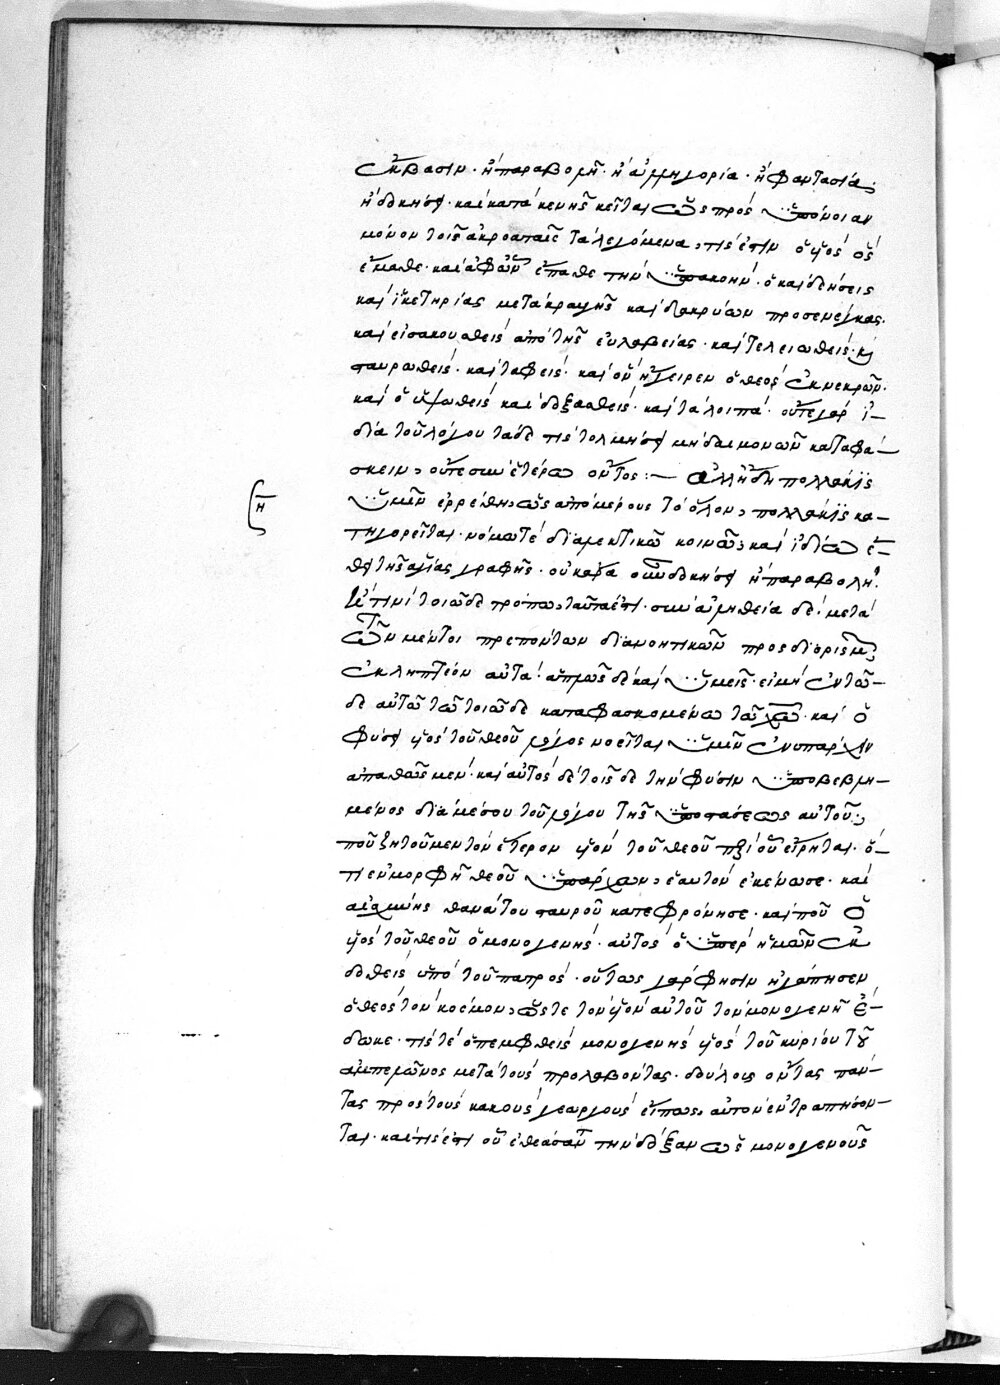 ἔκβασιν · ἢ παραβολὴ · ἢ ἀλληγορία · ἢ φαντασία,
ἢ δόκησις · καὶ κατὰ κενῆς κεῖται ὡς πρὸς ὑπόνοιαν
μόνον τοῖς ἀκροαταῖς τὰ λεγόμενα, τίς ἐστιν ὁ υἱὸς ὃς
ἔμαθε · καὶ ἀφ' ὧν ἔπαθε τὴν ὑπακοήν · ὁ καὶ δεήσεις
καὶ ἱκετηρίας μετὰ κραυγῆς καὶ δακρύων προσενέγκας ·
καὶ εἰσακουσθεὶς ἀπὸ τῆς εὐλαβείας · καὶ τελειωθείς · κὶ
σταυρωθεὶς · καὶ ταφείς · καὶ ὃν ἤγειρεν ὁ θεὸς ἐκ νεκρῶν ·
καὶ ὁ ὑψωθεὶς καὶ δοξασθείς · καὶ τὰ λοιπά · οὔτε γὰρ ἰ-
δία τοῦ λόγου ταῦτα τὶς τολμήσῃ μὴ δαιμονῶν καταφά-
σκειν, οὔτε συνετέρω ὄντος :- Ἀλλ' ἤδη πολλάκις
ὑμῖν ἐρρέθη, ὡς ἀπὸ μέρους τὸ ὅλον, πολλάκις κα-
τηγορεῖται · νόμω τὲ διαλεκτικῶ κοινῶς, καὶ ἰδίω ἔ-
θει τῆς ἁγίας γραφῆς · οὐκ ἄρα οὖν δόκησις ἢ παραβολὴ
ἤ τινι τοιῶδε τρόπω, ταῦτά ἐστι · σὺν ἀληθεία δὲ · μετὰ
τῶν μέντοι πρεπόντων διανοητικῶν προσδιορισμῶν,
ἐκληπτέον αὐτά · ἁπλῶς δὲ καὶ ὑμεῖς · εἰ μὴ ἐν τῶ-
δε αὐτῶ τῶ τοιῶδε καταφασκομένω τῶ χω · καὶ ὁ
φύσει υἱὸς τοῦ θεοῦ λόγος νοεῖται ὑμῖν ἐνυπάρχειν
ἀπαθῶς μέν · καὶ αὐτὸς δὲ τοῖς δε τὴν φύσιν ὑποβεβλη-
μένος διὰ μέσου τοῦ λόγου τῆς ὑποστάσεως αὐτοῦ,
ποῦ ζητοῦμεν τὸν ἕτερον υἱὸν τοῦ θεοῦ περὶ οὗ εἴρηται · ὅ-
τι ἐν μορφῇ θεοῦ ὑπάρχων, ἑαυτὸν ἐκένωσε · καὶ
αἰσχύνης θανάτου σταυροῦ κατεφρόνησε · καὶ ποῦ ὁ
υἱὸς τοῦ θεοῦ ὁ μονογενής · αὐτὸς ὁ ὑπὲρ ἡμῶν ἐκ
δοθεὶς ὑπὸ τοῦ πατρός · οὕτως γὰρ φησὶν ἠγάπησεν
ὁ θεὸς τὸν κόσμον, ὥστε τὸν υἱὸν αὐτοῦ τὸν μονογενῆ ἔ-
δωκε · τίς τὲ ὁ πεμφθεὶς μονογενὴς υἱὸς τοῦ κυρίου τοῦ
ἀμπελῶνος μετὰ τοὺς προλαβόντας · δούλους ὄντας πάν-
τας πρὸς τοὺς κακοὺς γεωργοὺς εἴπως, αὐτὸν ἐντραπήσον-
ται · καὶ τίς ἐστι οὗ ἐθεάσαντο τὴν δόξαν ὡς μονογενοῦς
η